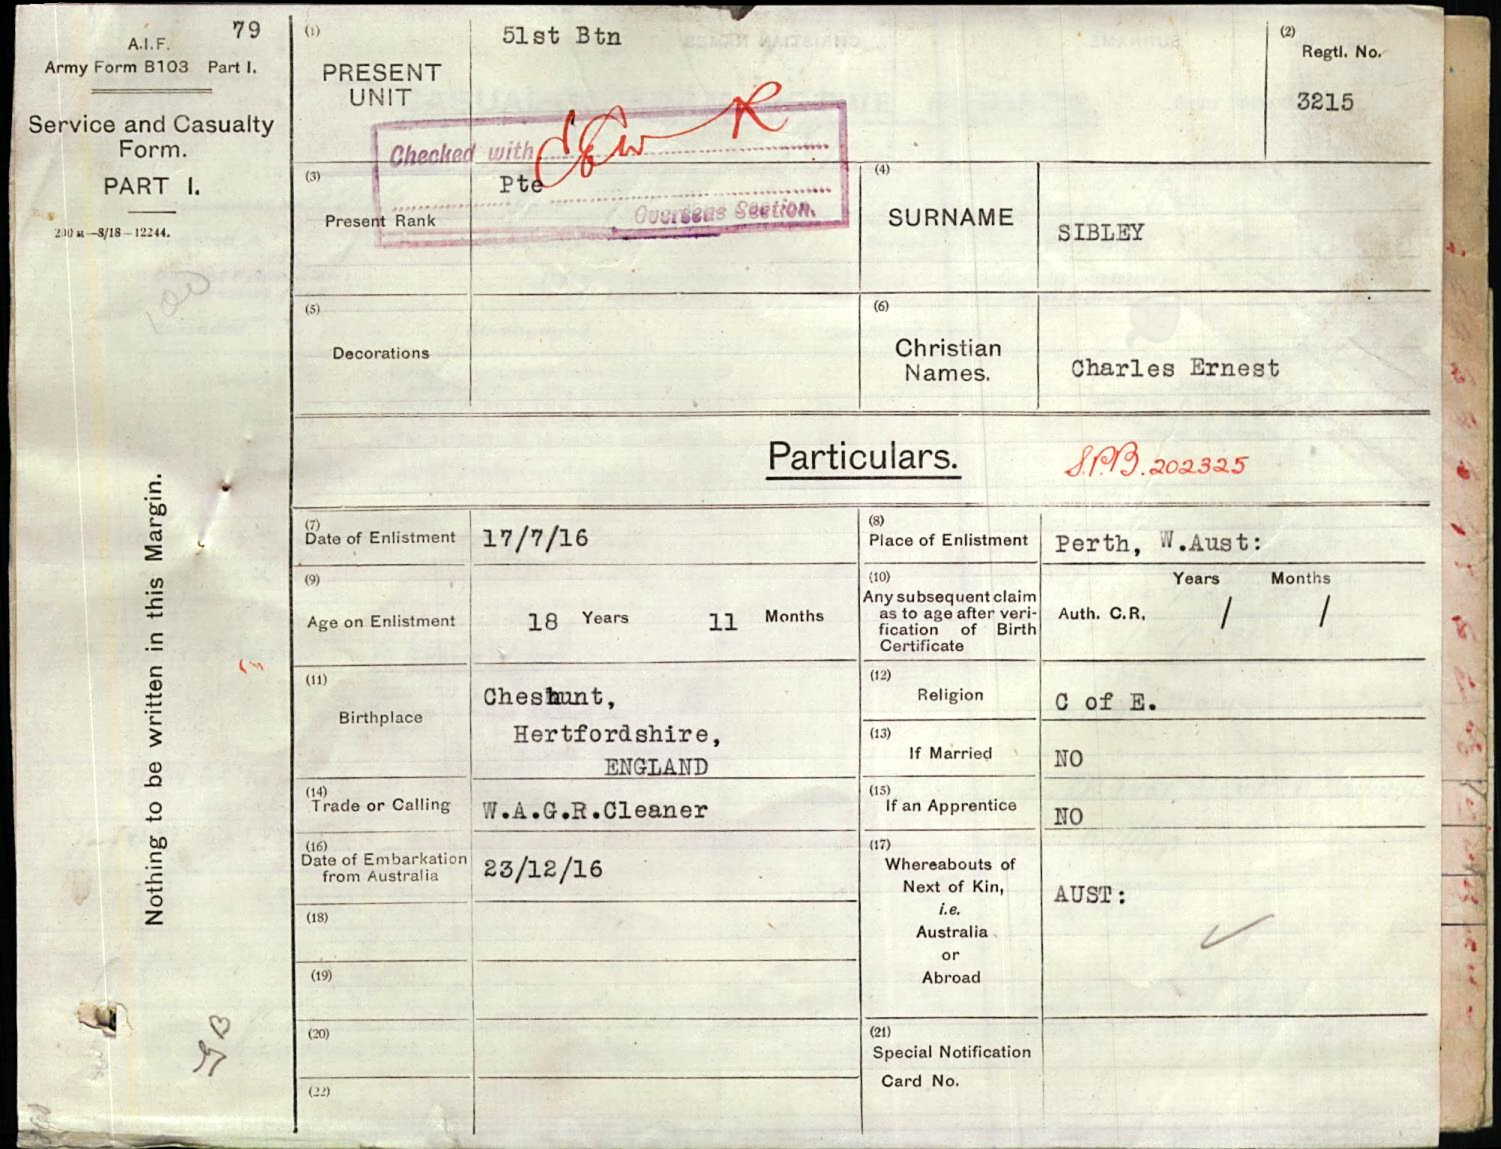 79
A.I.F.
Army Form B103 Part I.
Service and Casualty
Form.
PART I.
200 M—8/18—12244.
100
Nothing to be written in this Margin.
(1)
PRESENT
UNIT
51st Btn
(2)
Regtl. No.
3215
Checked with
Overseas Section.
(3)
Present Rank
Pte
(4)
SURNAME
SIBLEY
(5)
Decorations
(6)
Christian
Names.
Charles Ernest
Particulars.
S.P.B. 202325
(7)
Date of Enlistment
17/7/16
(8)
Place of Enlistment
Perth, W.Aust:
(9)
Age on Enlistment
18 Years 11 Months
(10)
Any subsequent claim
as to age after veri-
fication of Birth
Certificate
Years Months
Auth. C.R. / /
(11)
Birthplace
Cheshunt,
Hertfordshire,
ENGLAND
(12)
Religion
C of E.
(13)
If Married
NO
(14)
Trade or Calling
W.A.G.R.Cleaner
(15)
If an Apprentice
NO
(16)
Date of Embarkation
from Australia
23/12/16
(17)
Whereabouts of
Next of Kin,
i.e.
Australia
or
Abroad
AUST:
(18)
(19)
(20)
(21)
Special Notification
Card No.
(22)